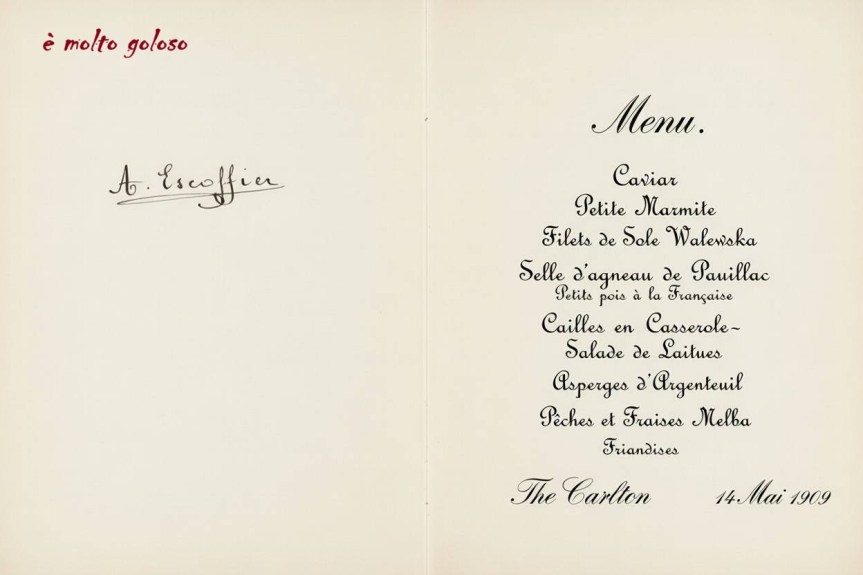 è molto goloso
A. Escoffier
Menu.
Caviar
Petite Marmite
Filets de Sole Walewska
Selle d'agneau de Pauillac
Petits pois à la Française
Cailles en Casserole~
Salade de Laitues
Asperges d'Argenteuil
Pêches et Fraises Melba
Friandises
The Carlton 14 Mai 1909